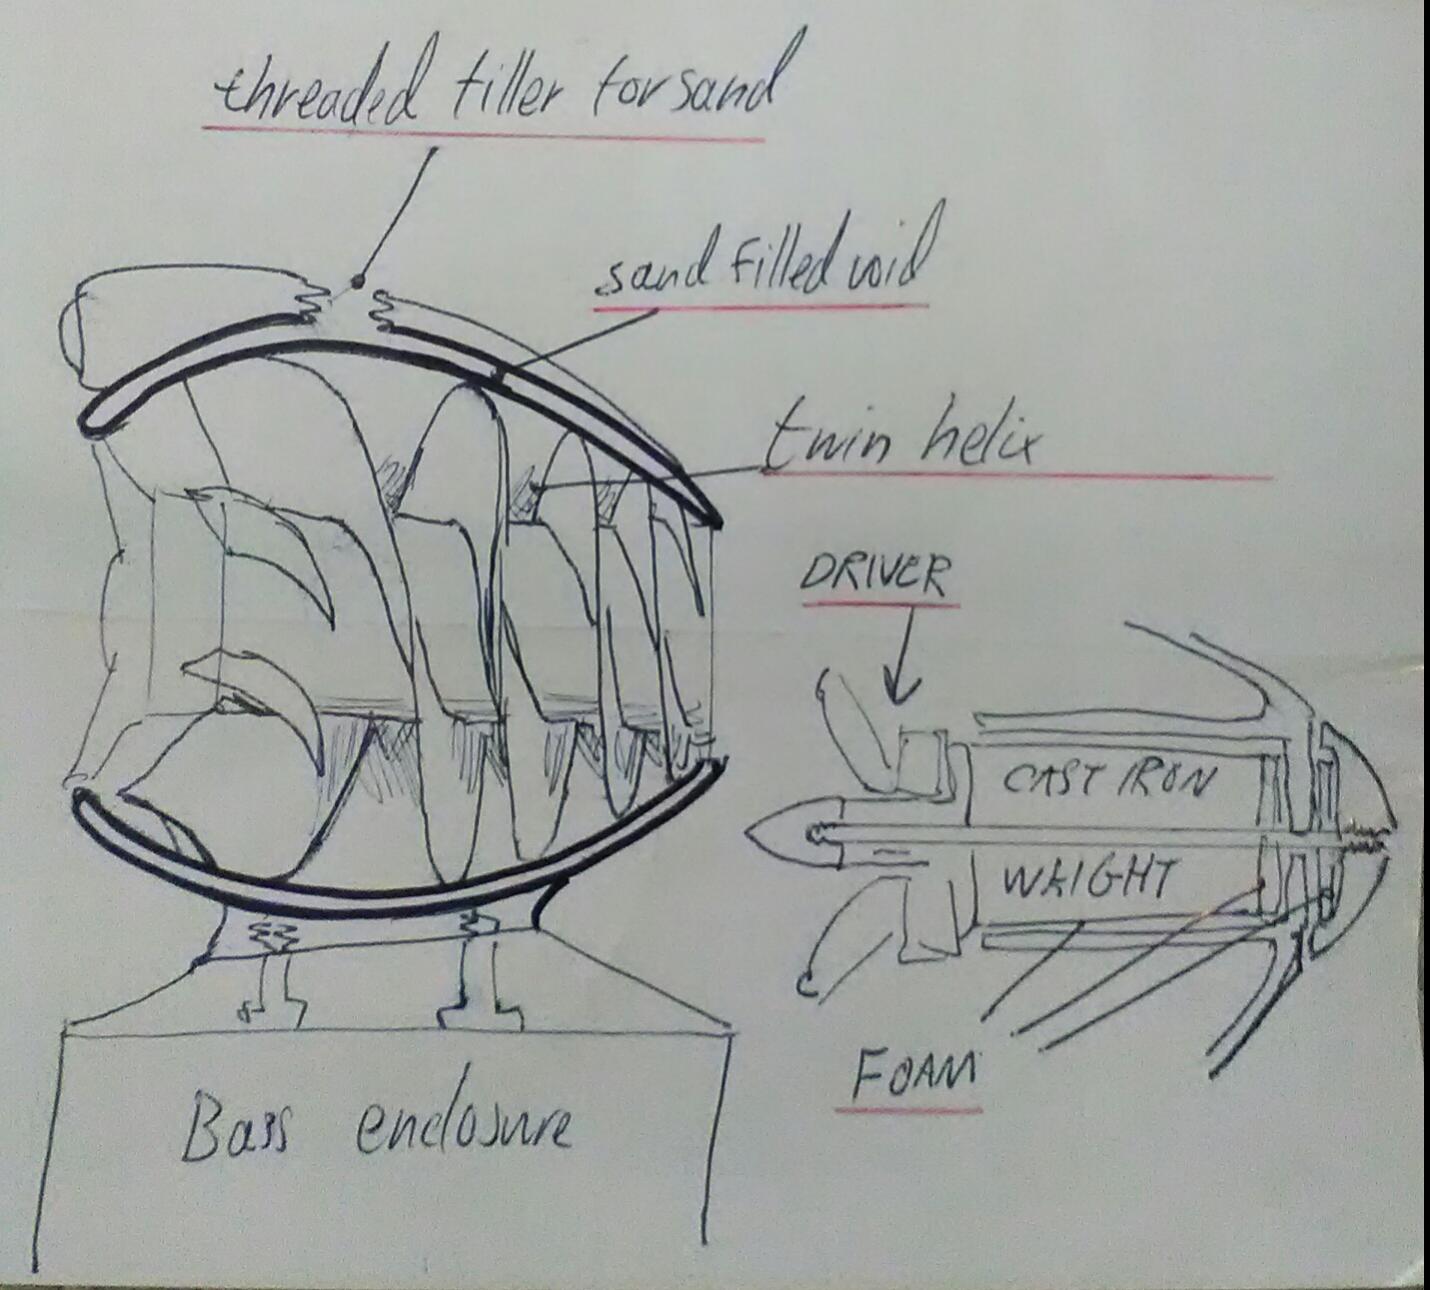 threaded filler for sand
sand filled void
twin helix
DRIVER
CAST IRON
WEIGHT
FOAM
Bass enclosure